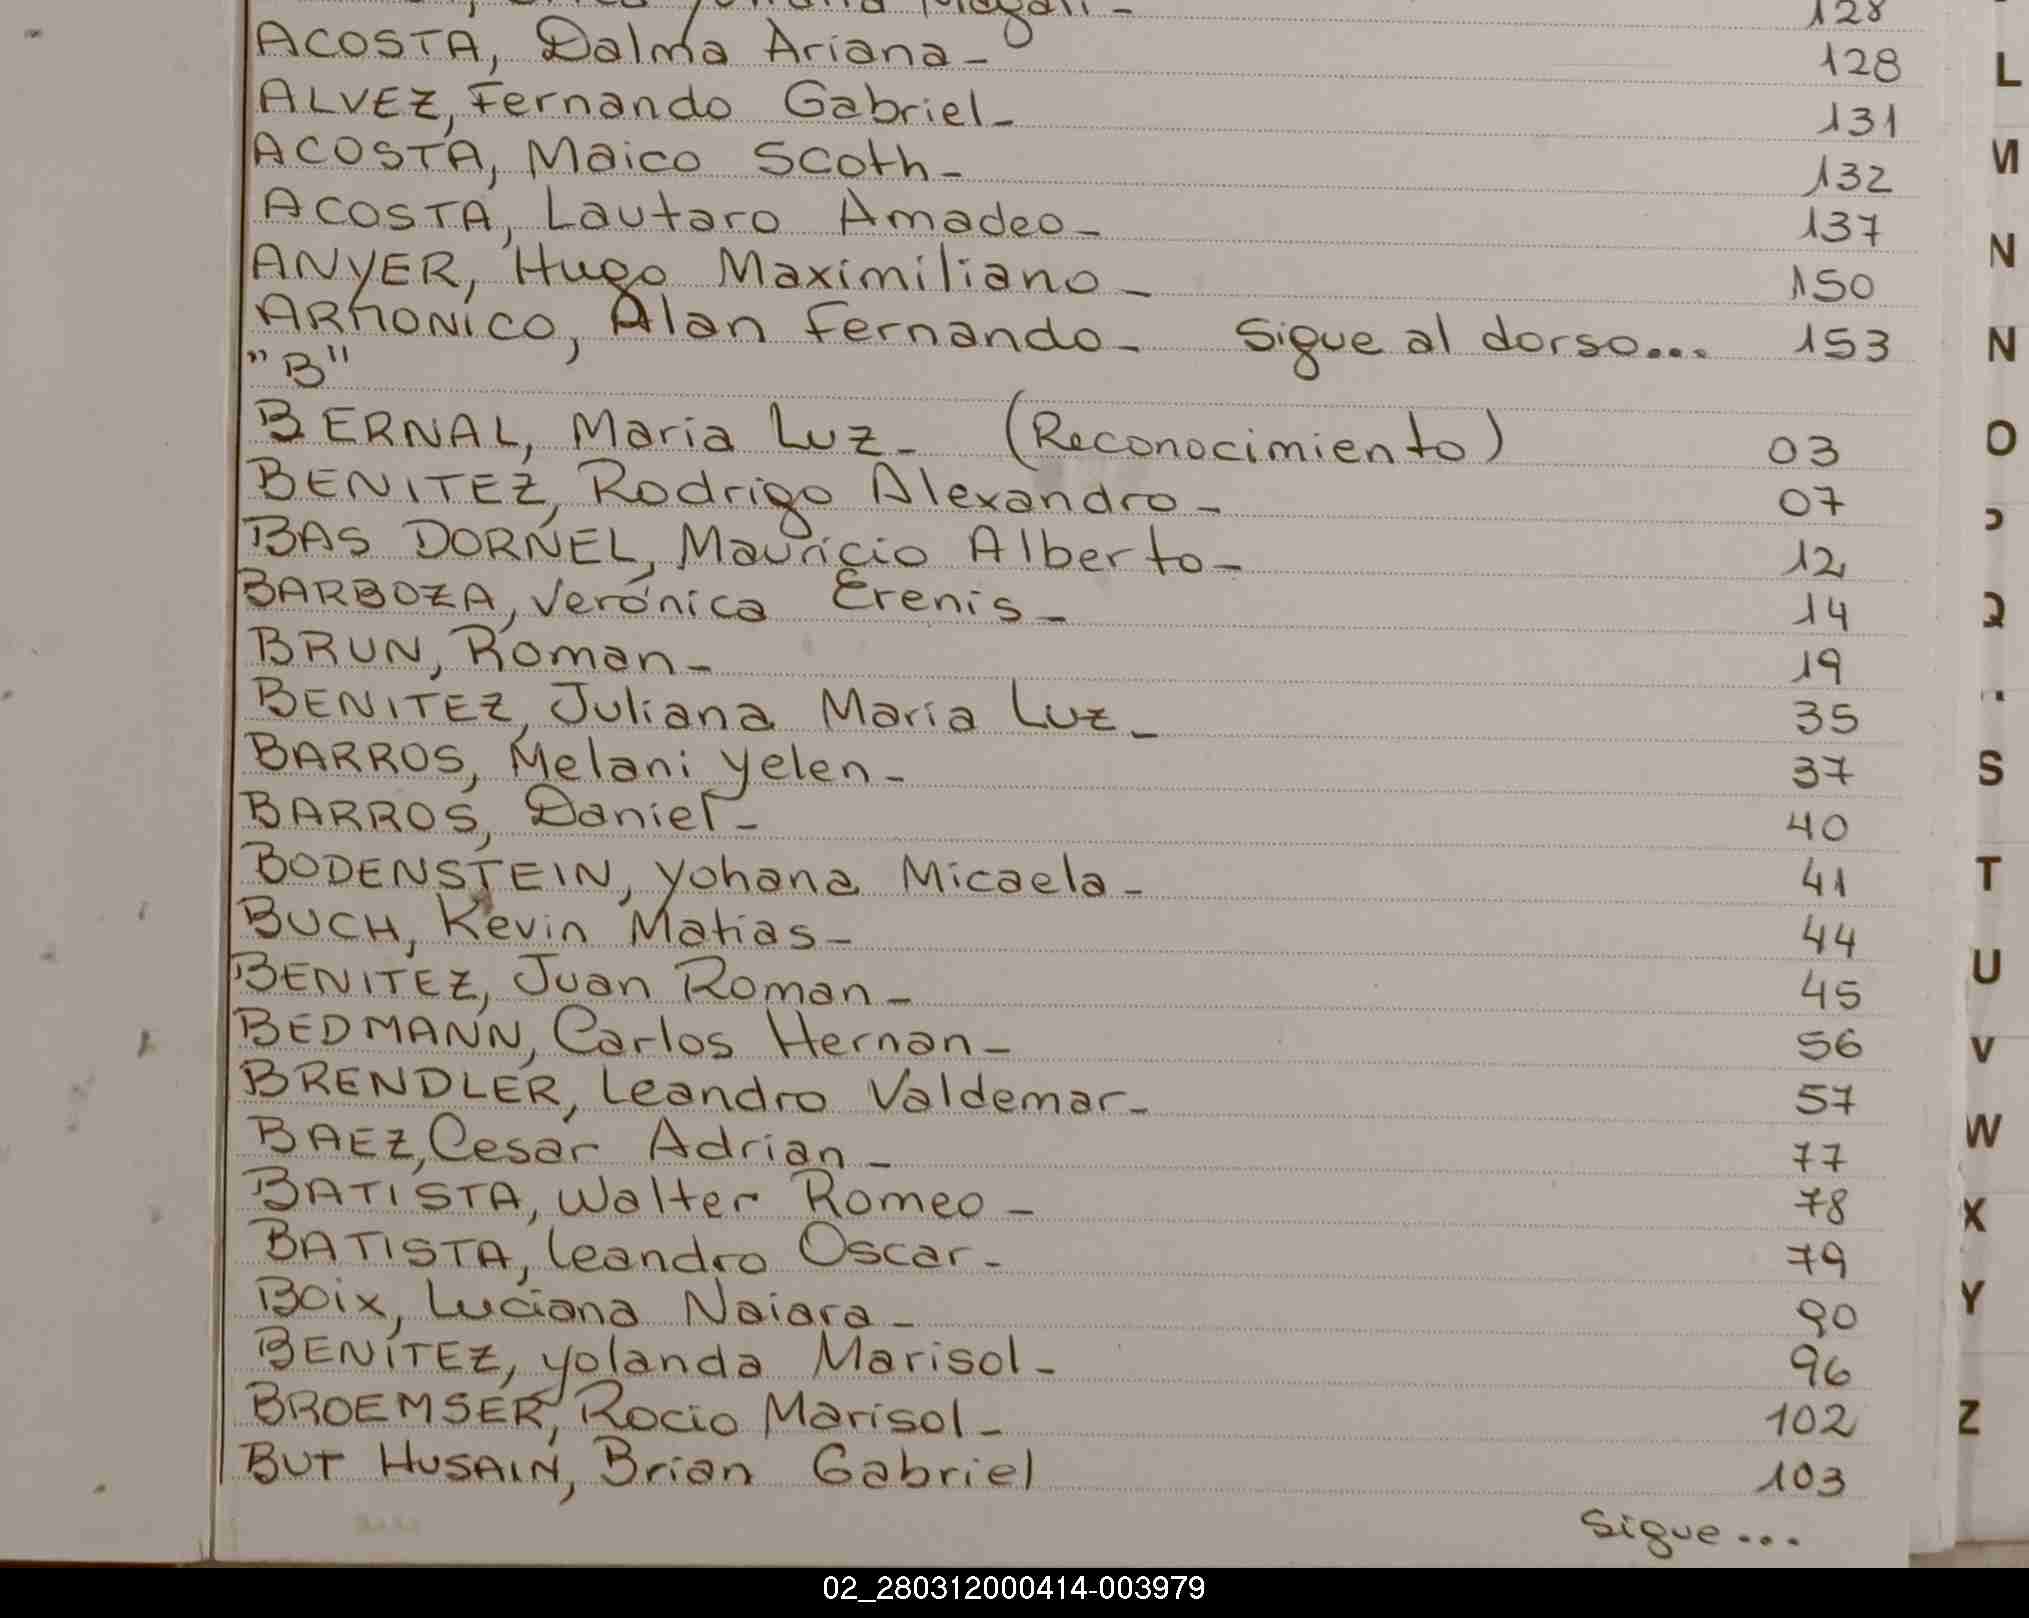 Magali - 128
ACOSTA, Dalma Ariana - 128
ALVEZ, Fernando Gabriel - 131
ACOSTA, Maico Scoth - 132
ACOSTA, Lautaro Amadeo - 137
ANYER, Hugo Maximiliano - 150
ARMONICO, Alan Fernando - Sigue al dorso... 153
"B"
BERNAL, Maria Luz - (Reconocimiento) 03
BENITEZ, Rodrigo Alexandro - 07
BAS DORNEL, Mauricio Alberto - 12
BARBOZA, Verónica Erenis - 14
BRUN, Roman - 19
BENITEZ, Juliana Maria Luz - 35
BARROS, Melani Yelen - 37
BARROS, Daniel - 40
BODENSTEIN, Yohana Micaela - 41
BUCH, Kevin Matias - 44
BENITEZ, Juan Roman - 45
BEDMANN, Carlos Hernan - 56
BRENDLER, Leandro Valdemar - 57
BAEZ, Cesar Adrian - 77
BATISTA, Walter Romeo - 78
BATISTA, Leandro Oscar - 79
BOIX, Luciana Naiara - 90
BENITEZ, Yolanda Marisol - 96
BROEMSER, Rocio Marisol - 102
BUT HUSAIN, Brian Gabriel 103
Sigue...
L
M
N
N
O
P
Q
S
T
U
V
W
X
Y
Z
02_280312000414-003979